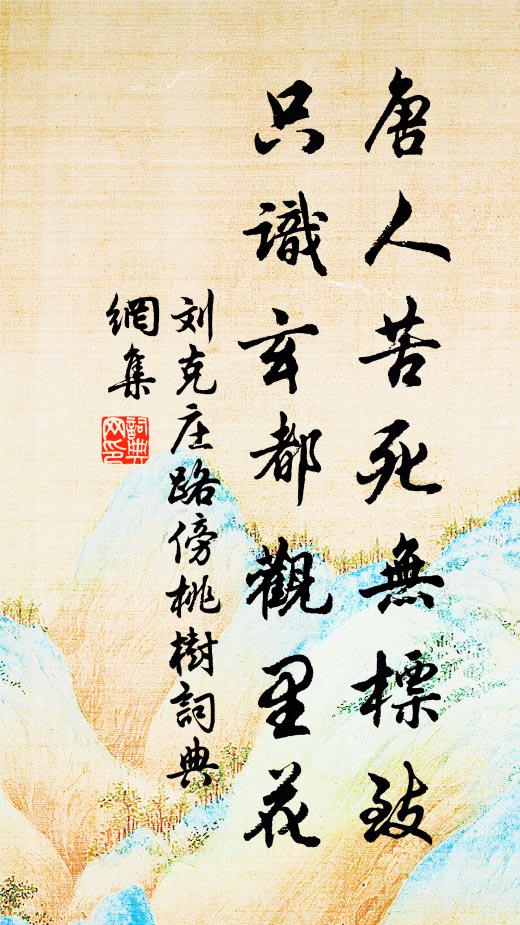 唐人苦死無標致
只識玄都觀里花
刘克庄路傍桃樹詞典
網集
詞典网印